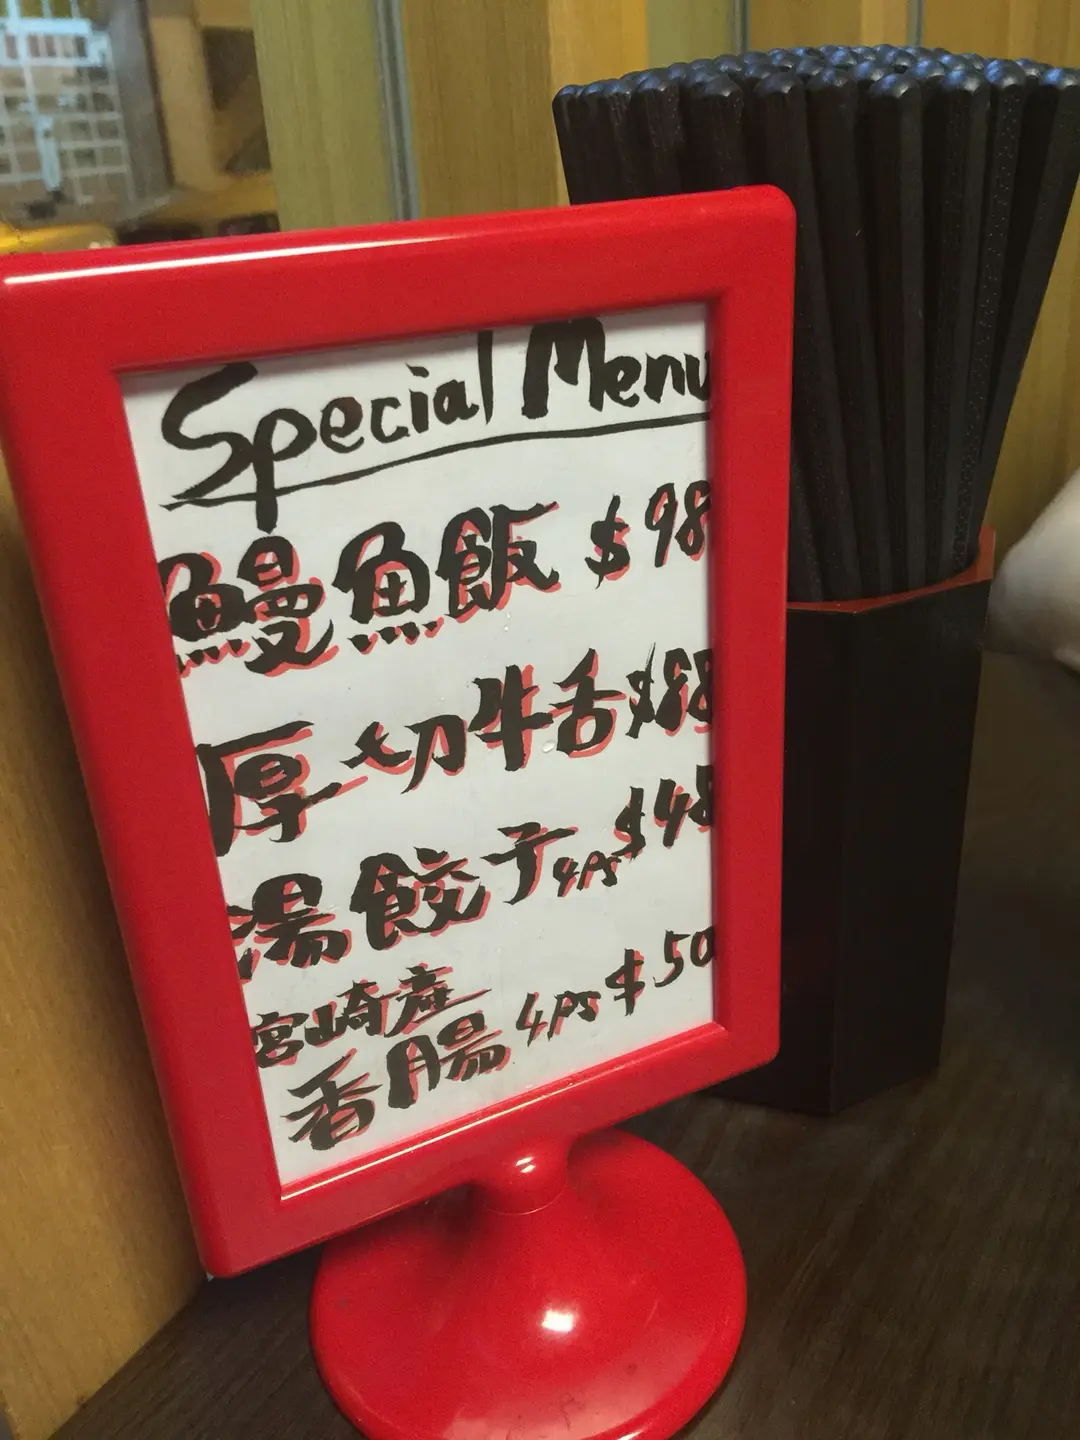 Special Menu
鰻魚飯 $98
厚切牛舌 $88
湯餃子 4Ps $48
宮崎産
香腸 4Ps $50